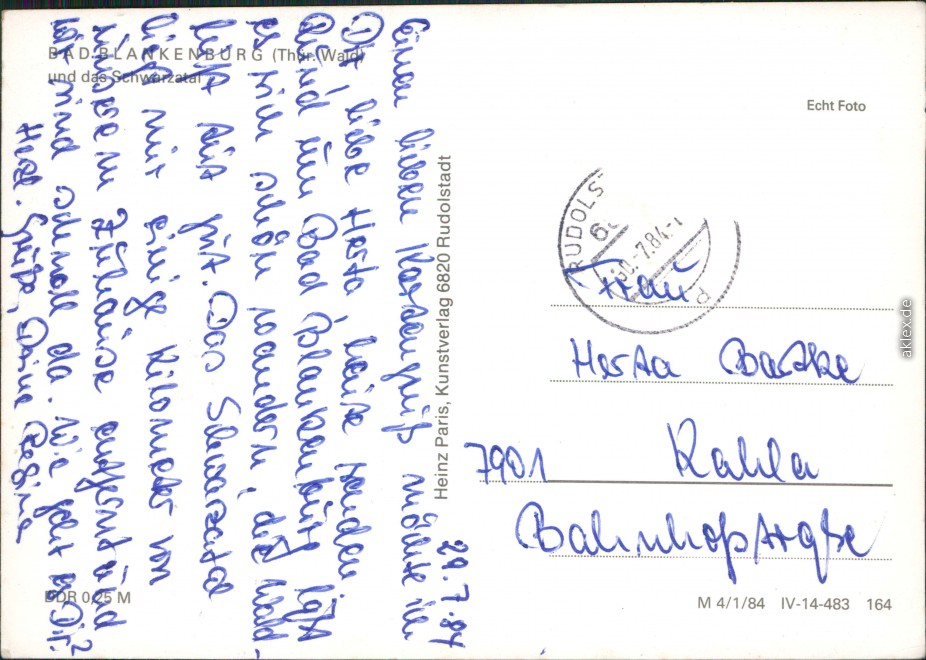 BAD BLANKENBURG (Thür. Wald)
und das Schwarzatal
Echt Foto
29.7.84
Einen lieben Kartengruß möchte ich
Dir liebe Herta heute senden.
Rund um Bad Blankenburg läßt
es sich schön wandern, die Wald-
luft tut gut. Das Schwarzatal
liegt nur einige Kilometer von
unserem Zuhause entfernt und
wir sind schnell da. Wie geht es Dir?
Herzl. Grüße, Deine Regina
Heinz Paris, Kunstverlag 6820 Rudolstadt
RUDOLST
30.-7.84-
Frau
Herta
7901 Kahla
Bahnhofstraße
DDR 0,25 M
M 4/1/84 IV-14-483 164
aklex.de